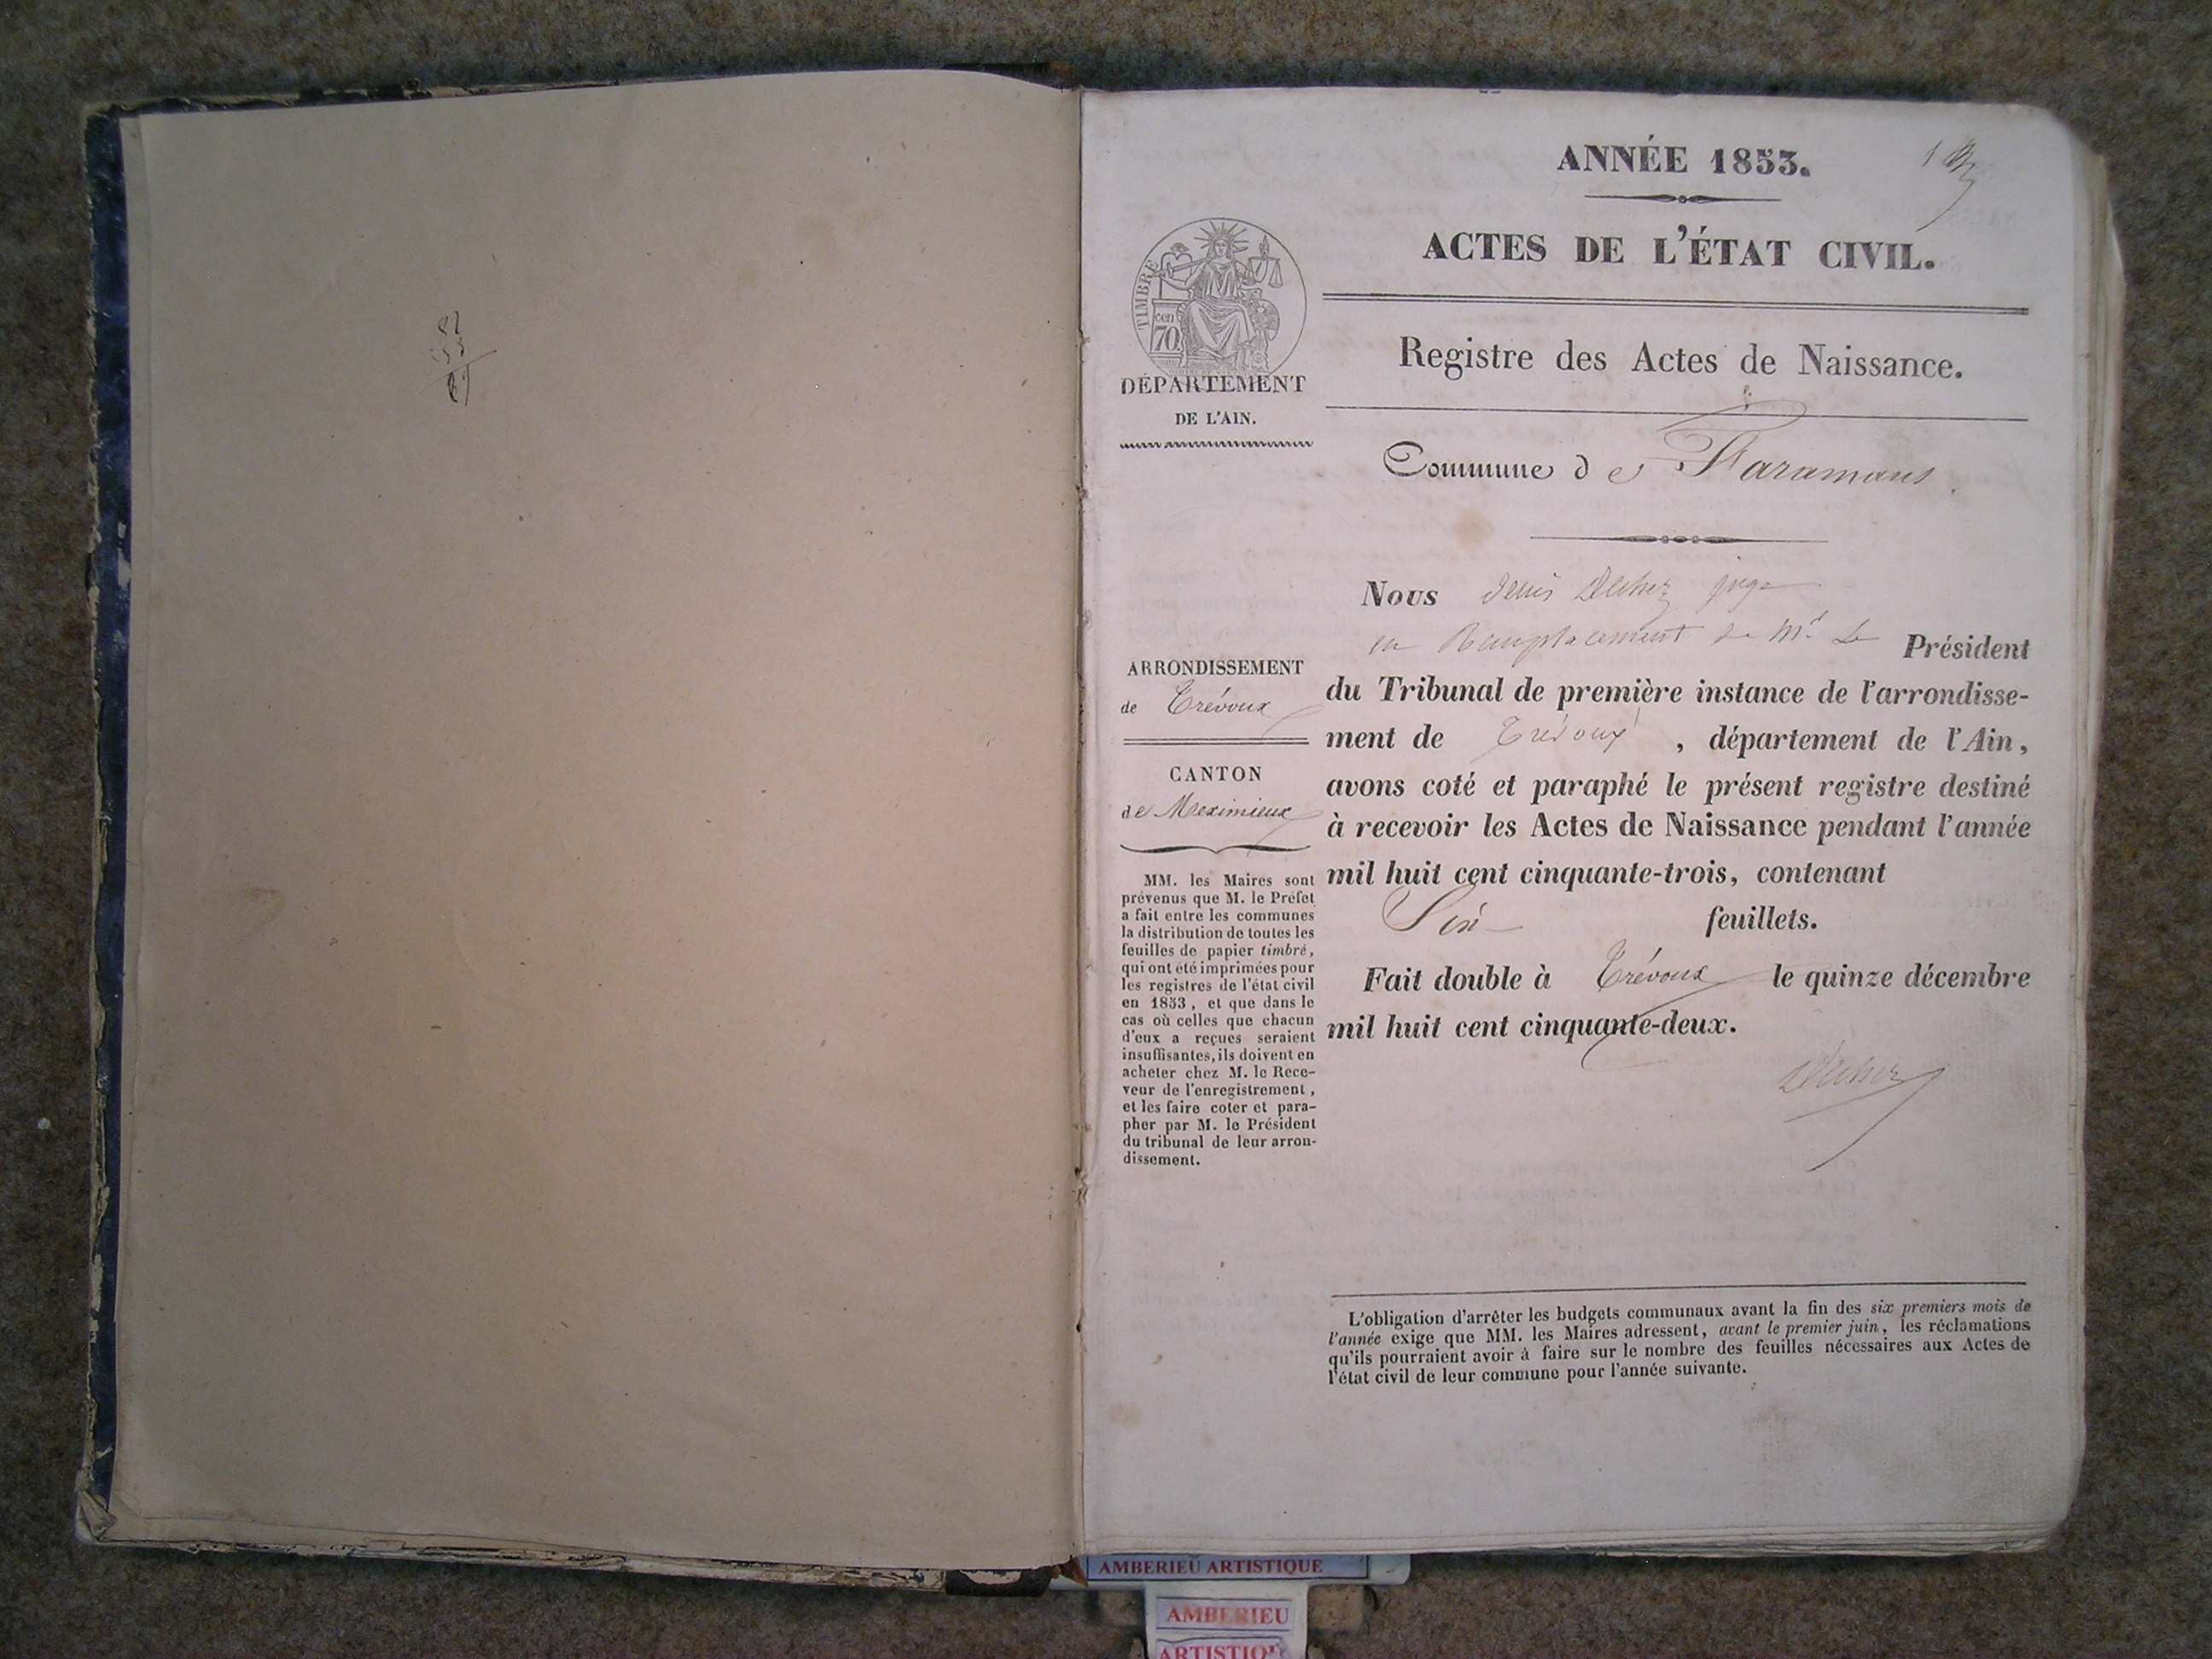 ANNÉE 1853.
1
ACTES DE L'ÉTAT CIVIL.
TIMBRE
cen
70
DÉPARTEMENT
DE L'AIN.
Registre des Actes de Naissance.
Commune de Faramans
ARRONDISSEMENT
de Trévoux
CANTON
de Meximieux
MM. les Maires sont
prévenus que M. le Préfet
a fait entre les communes
la distribution de toutes les
feuilles de papier timbré,
qui ont été imprimées pour
les registres de l'état civil
en 1853, et que dans le
cas où celles que chacun
d'eux a reçues seraient
insuffisantes, ils doivent en
acheter chez M. le Rece-
veur de l'enregistrement,
et les faire coter et para-
pher par M. le Président
du tribunal de leur arron-
dissement.
Nous Denis juge
en Remplacement de Mr Le Président
du Tribunal de première instance de l'arrondisse-
ment de Trévoux, département de l'Ain,
avons coté et paraphé le présent registre destiné
à recevoir les Actes de Naissance pendant l'année
mil huit cent cinquante-trois, contenant
Six feuillets.
Fait double à Trévoux le quinze décembre
mil huit cent cinquante-deux.
L'obligation d'arrêter les budgets communaux avant la fin des six premiers mois de
l'année exige que MM. les Maires adressent, avant le premier juin, les réclamations
qu'ils pourraient avoir à faire sur le nombre des feuilles nécessaires aux Actes de
l'état civil de leur commune pour l'année suivante.
AMBERIEU ARTISTIQUE
AMBERIEU